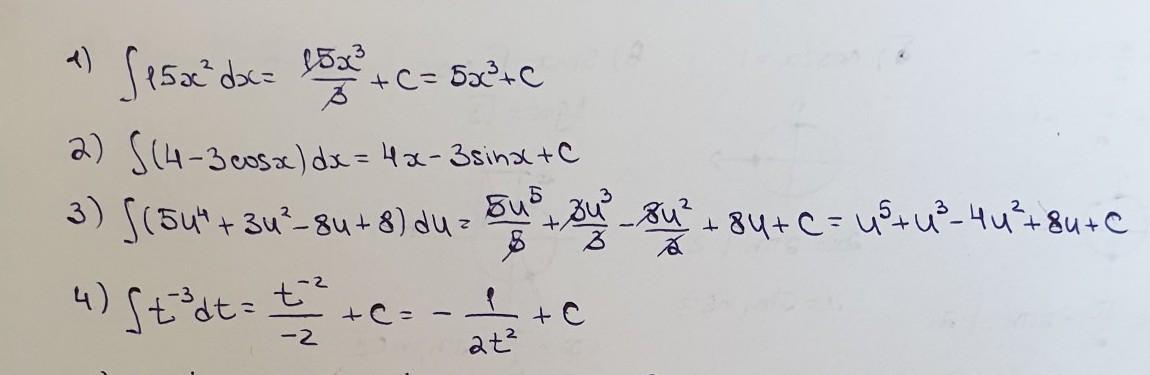 1) ∫15x² dx = 15x³/3 + C = 5x³ + C
2) ∫(4 - 3cosx) dx = 4x - 3sinx + C
3) ∫(5u⁴ + 3u² - 8u + 8) du = 5u⁵/5 + 3u³/3 - 8u²/2 + 8u + C = u⁵ + u³ - 4u² + 8u + C
4) ∫t⁻³dt = t⁻²/-2 + C = - 1/2t² + C